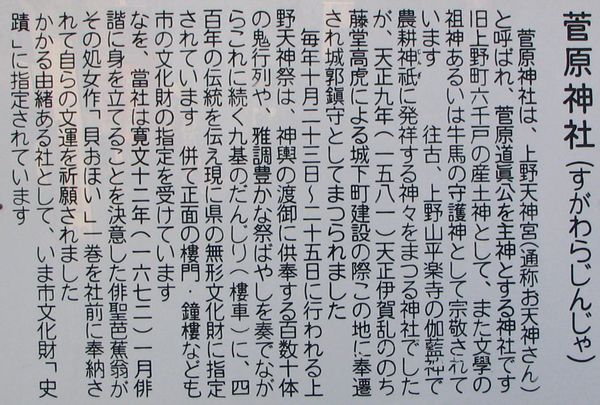 菅原神社（すがわらじんじゃ）
菅原神社は、上野天神宮（通称お天神さん）
と呼ばれ、菅原道眞公を主神とする神社です
旧上野町六千戸の産土神として、また文學の
祖神あるいは牛馬の守護神として宗敬されて
います　往古、上野山平楽寺の伽藍神で
農耕神祇に発祥する神々をまつる神社でした
が、天正九年（一五八一）天正伊賀乱ののち
藤堂高虎による城下町建設の際この地に奉遷
され城郭鎮守としてまつられました
毎年十月二十三日～二十五日に行われる上
野天神祭は、神輿の渡御に供奉する百数十体
の鬼行列や、雅調豊かな祭ばやしを奏でなが
らこれに続く九基のだんじり（樓車）に、四
百年の伝統を伝え現に県の無形文化財に指定
されています　併て正面の樓門・鐘樓なども
市の文化財の指定を受けています
なを、當社は寛文十二年（一六七二）一月俳
諧に身を立てることを決意した俳聖芭蕉翁が
その処女作「貝おほい」一巻を社前に奉納さ
れて自らの文運を祈願されました
かかる由緒ある社として、いま市文化財「史
蹟」に指定されています